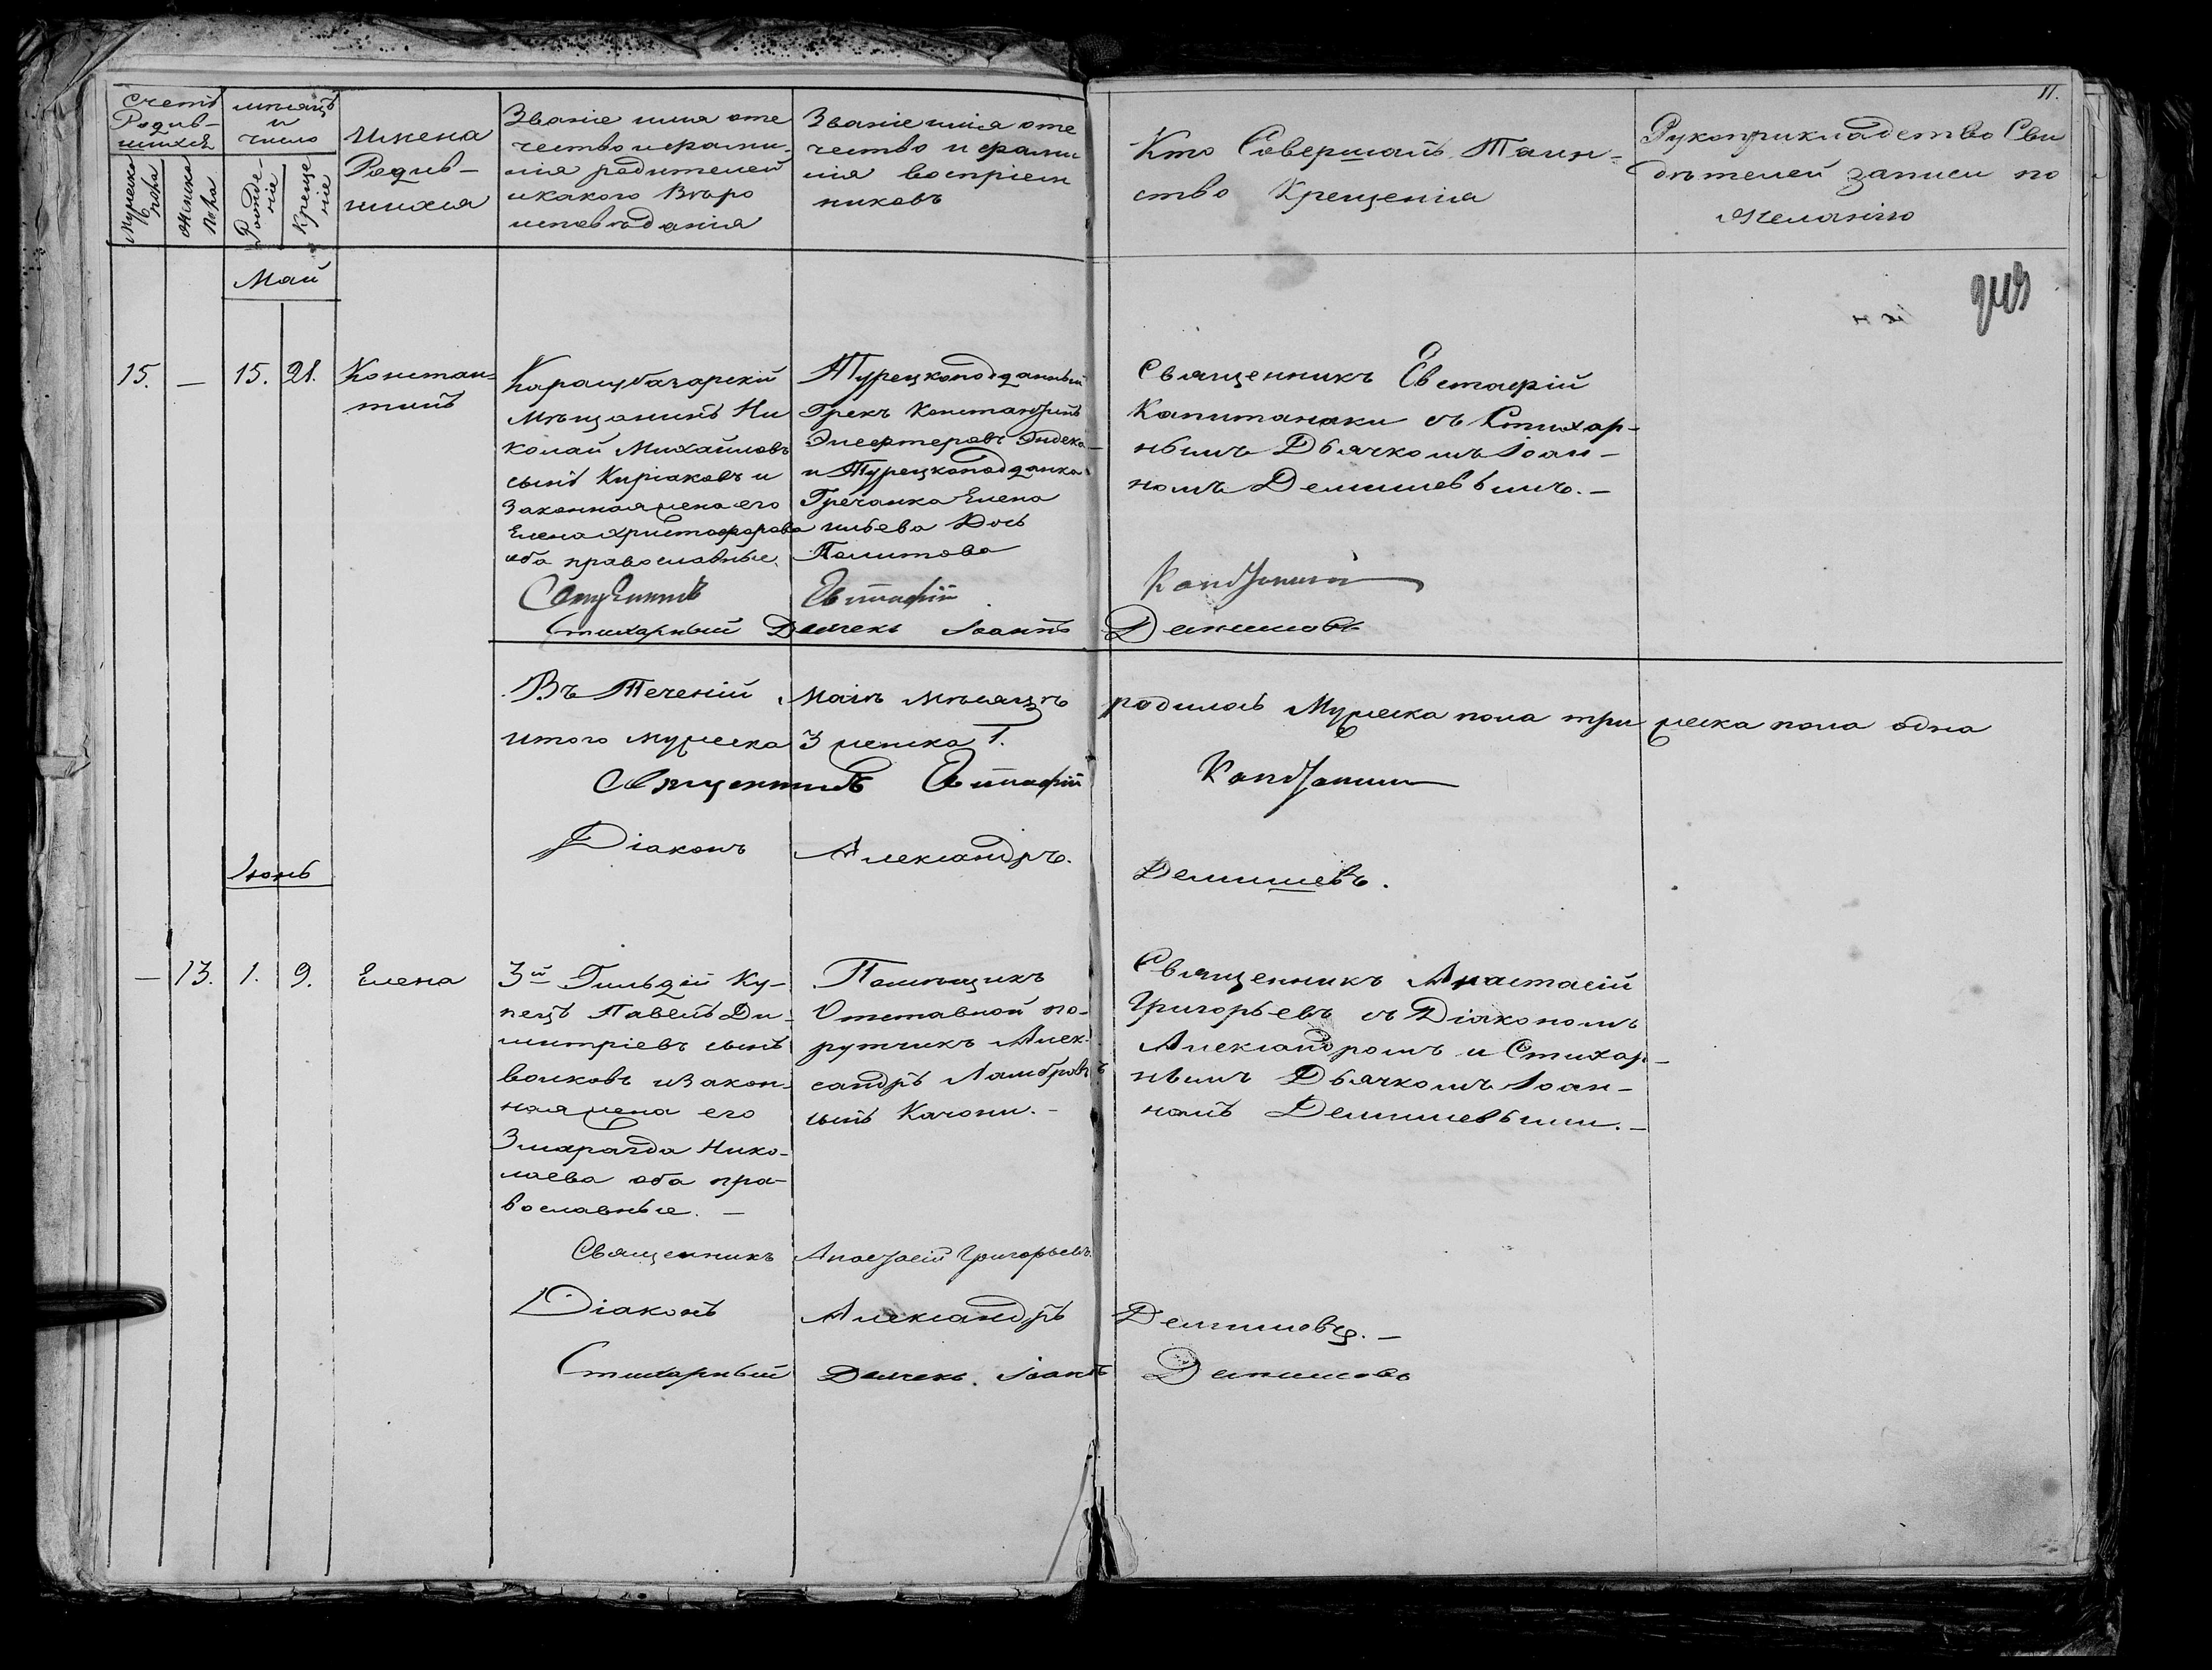 11.
Счетъ
Родив-
шихся
Мужеска
пола
Женска
пола
мѣсяцъ
и
число
Рожде-
ніе
Креще
ніе
Имена
Родив-
шихся
Званіе имя оте
чество и фами-
лія родителей
и какого Вѣро
исповѣданія
Званіе имя оте
чество и фами
лія воспріем
никовъ
Кто Совершалъ Таин-
ство Крещенія
Рукоприкладство Сви
дѣтелей записи по
желанію
Май
15. — 15. 21.
Констан-
тинъ
Карасубазарскій
Мѣщанинъ Ни
колай Михайловъ
сынъ Киріаковъ и
Законная жена его
Елена Христофорова
оба православные.
Турецкоподданный
Грекъ Константинъ
Элефтеровъ
и Турецкоподданка
Гречанка Елена
Ильева Дочь
Священникъ Евстафій
Капитанаки съ Стихар-
нымъ Дьячкомъ Іоан-
номъ Демишевымъ.—
Священникъ Евстафій
Стихарный Дьячекъ Іоаннъ
Въ Теченіи Маія Мѣсяцѣ родилось Мужеска пола три женска пола одна
итого мужеска 3 женска 1.
Священникъ Евстафій
Діаконъ Александръ. Демишевъ.
Іюнь
— 13. 1. 9.
Елена
3й Гильдіи Ку-
пецъ Павелъ Ди-
митріевъ сынъ
Волковъ и закон-
ная жена его
Змарагда Нико-
лаева оба пра-
вославные. —
Помѣщикъ
Отставной по-
ручикъ Алек-
сандръ Ламбровъ
сынъ Качони. -
Священникъ Анастасій
Григорьевъ съ Діакономъ
Александромъ и Стихар-
нымъ Дьячкомъ Іоан-
номъ Демишевыми.—
Священникъ Анастасій Григорьевъ.
Діаконъ Александръ Демишевъ. —
Стихарный Дьячекъ. Іоаннъ